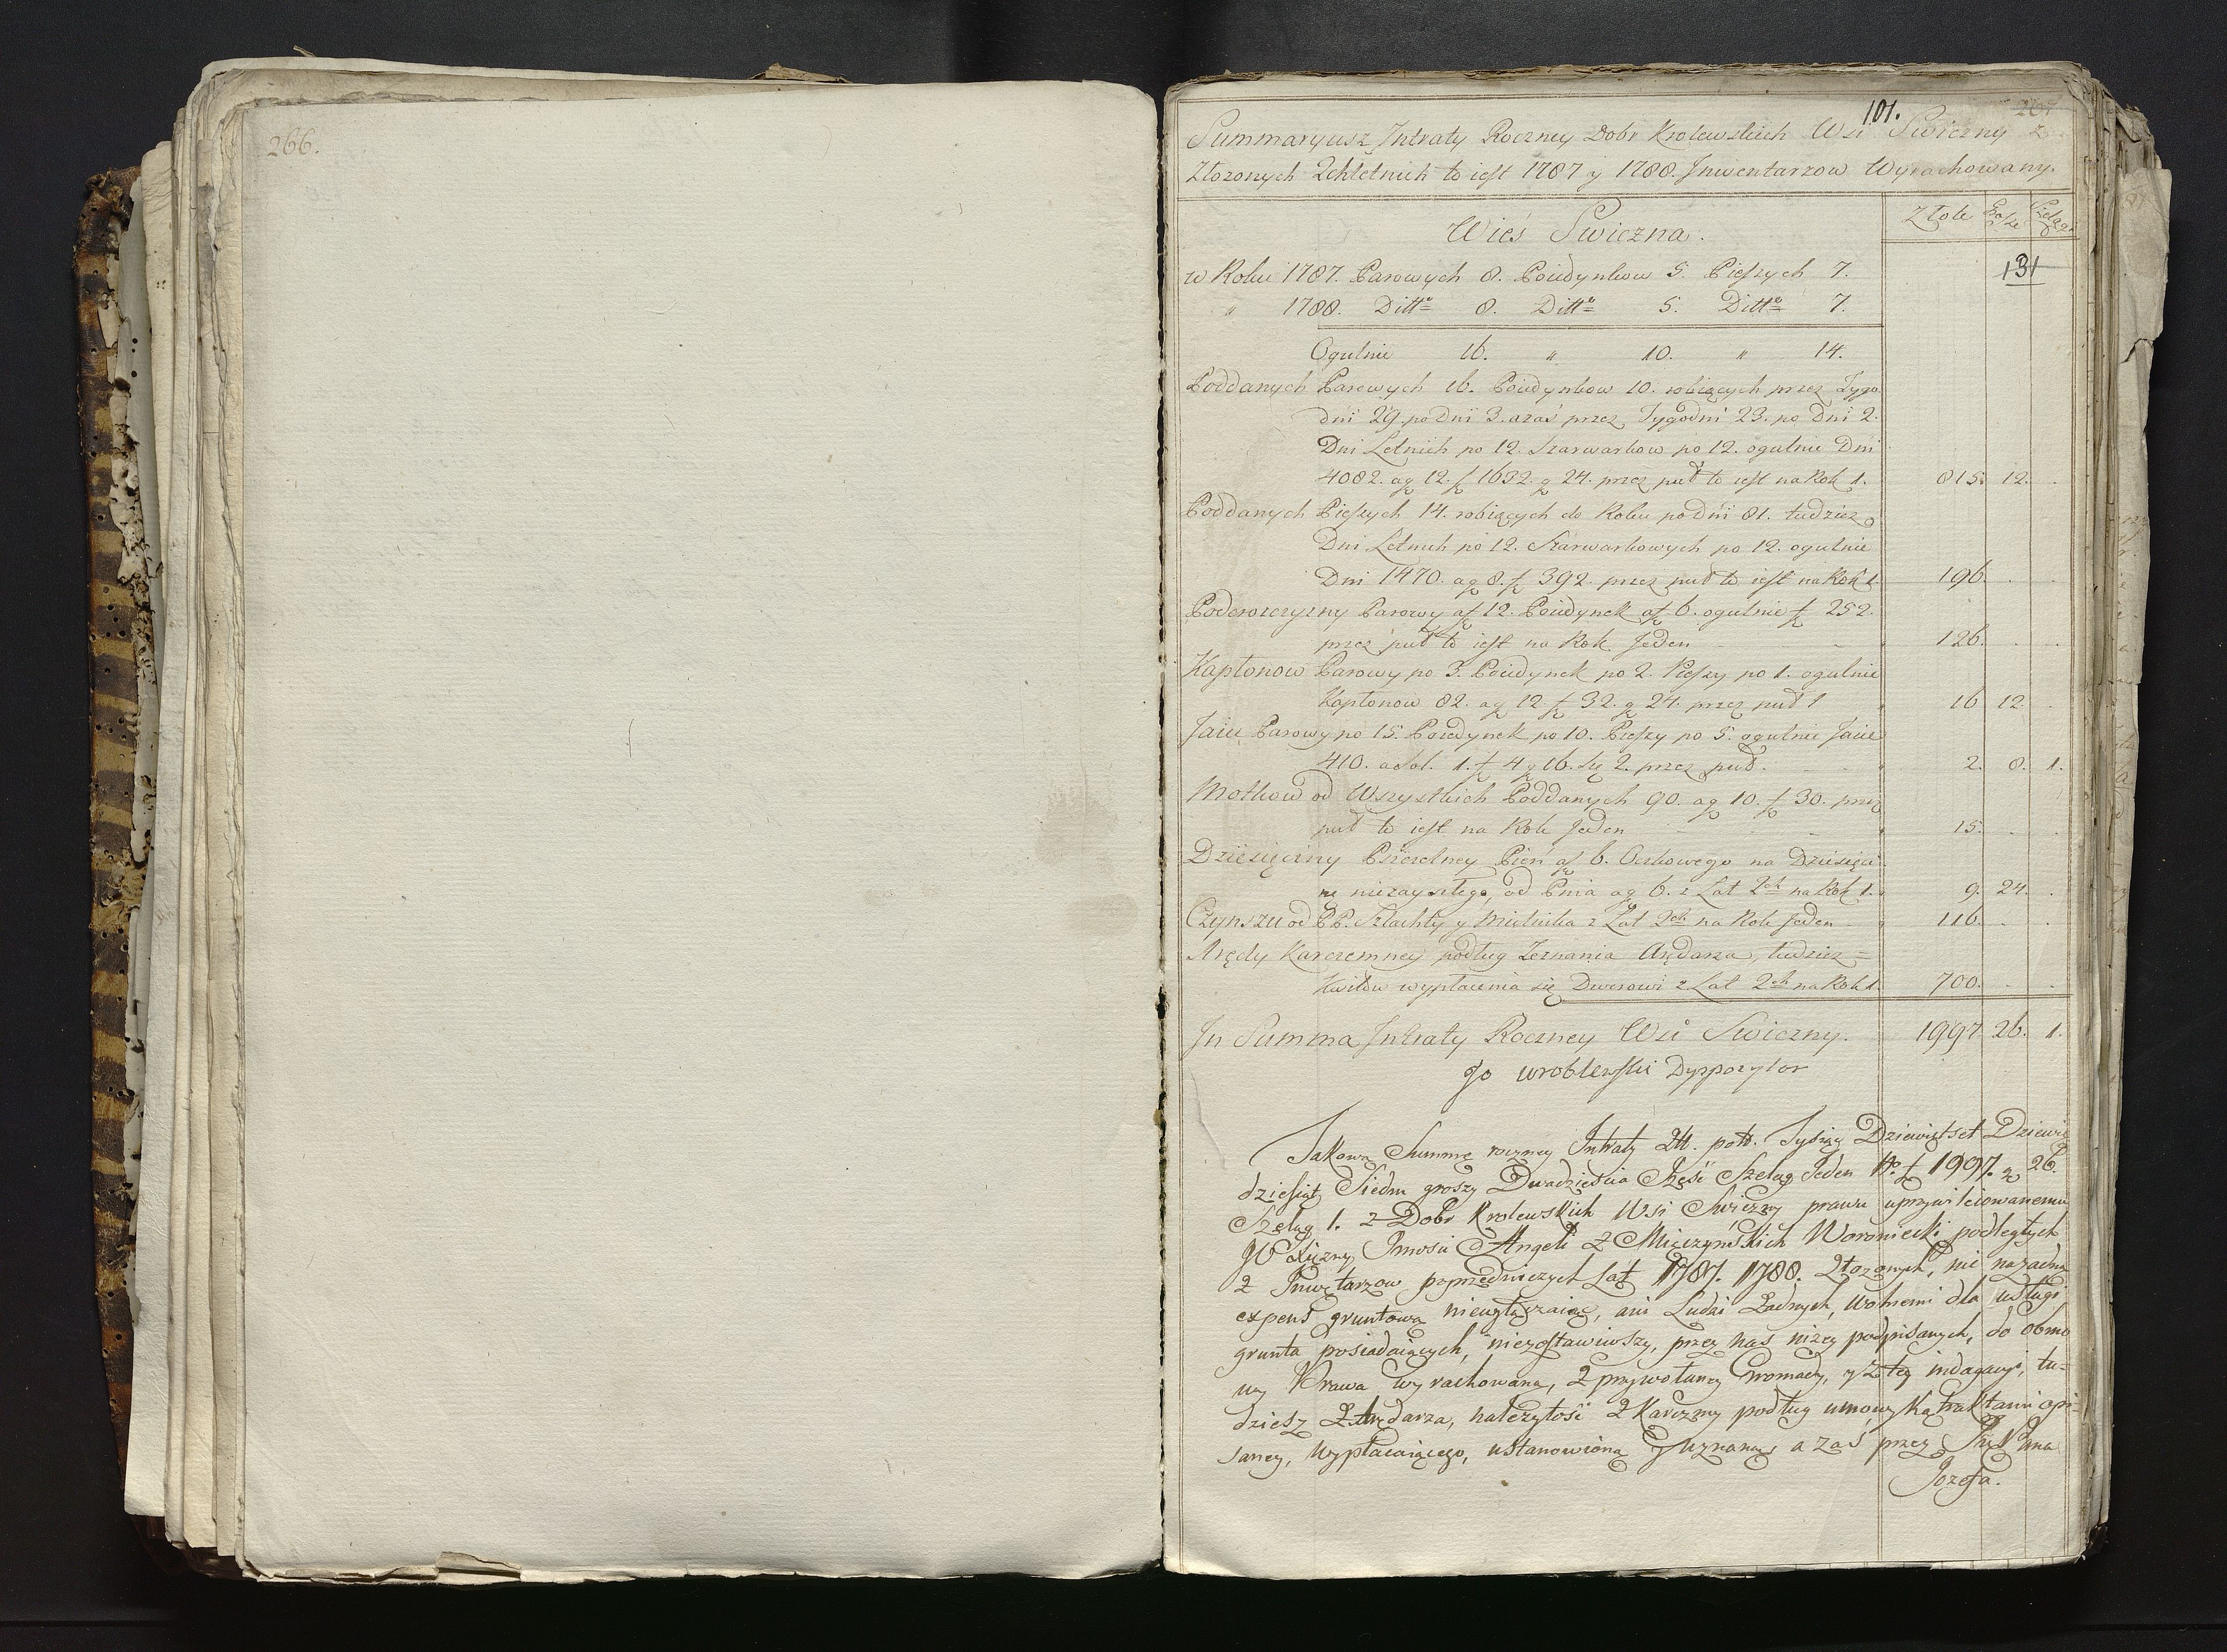 266.
101.
267
Summaryusz Intraty Roczney Dobr Krolewskich Wsi Swiczny z
Złozonych 2chletnich to iest 1787 y 1788. Inwentarzow Wyrachowany.
Złote Grosze Szelągi
Wieś Swiczna.
131
w Roku 1787. Parowych 8. Poiedynkow 5. Pieszych 7.
" 1788. Ditto 8. Ditto 5. Ditto 7.
Ogulnie 16. " 10. " 14.
Poddanych Parowych 16. Poiedynkow 10. robiących przez Tygo
dni 29. po Dni 3. azas przez Tygodni 23. po Dni 2.
Dni Letnich po 12. Szarwarkow po 12. ogulnie Dni
4082. a g 12. f 1632. g 24. przez puł to iest na Rok 1. 815. 12. .
Poddanych Pieszych 14. robiących do Roku po Dni 81. tudziez
Dni Letnich po 12. Szarwarkowych po 12. ogulnie
Dni 1470. a g 8. f 392. przez puł to iest na Rok 1. 196. . .
Podorozczyzny Parowy a f 12. Poiedynek a f 6. ogulnie f 252.
przez puł to iest na Rok Jeden - - " 126. . .
Kapłonow Parowy po 3. Poiedynek po 2. Pieszy po 1. ogulnie
Kapłonow 82. a g 12 f 32. g 24. przez puł 1 " 16 12 .
Jaiu Parowy po 15. Poiedynek po 10. Pieszy po 5. ogulnie Jaiu
410. a Sol. 1. f 4 g 16. Sz 2. przez puł. - - " 2. 8. 1.
Motkow od Wszystkich Poddanych 90. a g 10. f 30. przez
puł to iest na Rok Jeden - - - " 15. . .
Dziesięciny Pszczelney Pien a f 6. Oczkowego na Dziesięci
nę niezayszłego, od Pnia a g 6. z Lat 2ch na Rok 1. " 9. 24. .
Czynszu od PP. Szlachty y Mielnika z Lat 2ch na Rok Jeden - " 116. . .
Arędy Karczemney podług Zeznania Arędarza, tudziez =
Kwitow wypłacenia się Dworowi z Lat 2ch na Rok 1. 700. . .
In Summa Intraty Roczney Wsi Swiczny. 1997. 26. 1.
Jo wroblewski Dyspozytor
Jakową Summę roczney Intraty Złł. pols. Tysiąc Dziewięćset Dziewię
dziesiąt Siedm groszy Dwadzieścia Sześć Szeląg Jeden No. f 1997. g 26.
Szeląg 1. z Dobr Krolewskich Wsi Swiczny prawu uprzywileiowanemu
JW Xiężny Jmosci Angeli z Mięczyńskich Woroniecki podległych
z Inwętarzow poprzedniczych Lat 1787. 1788. złozonych, nic na zadną
expens gruntową niewyłączaiąc, ani Ludzi Zadnych, wolnemi dla usługi
grunta posiadaiących, niezostawiwszy, przez nas nizey podpisanych, do obmo
wy Prawa wyrachowaną, z przywołaney Gromady, y z tey indagacyi, tu=
dziesz z Arędarza, nalezytość z Karczmy podług umowy Kątraktami opi=
saney, wypłacaiącego, ustanowioną y uznaną, a zaś przez
Jozefa.